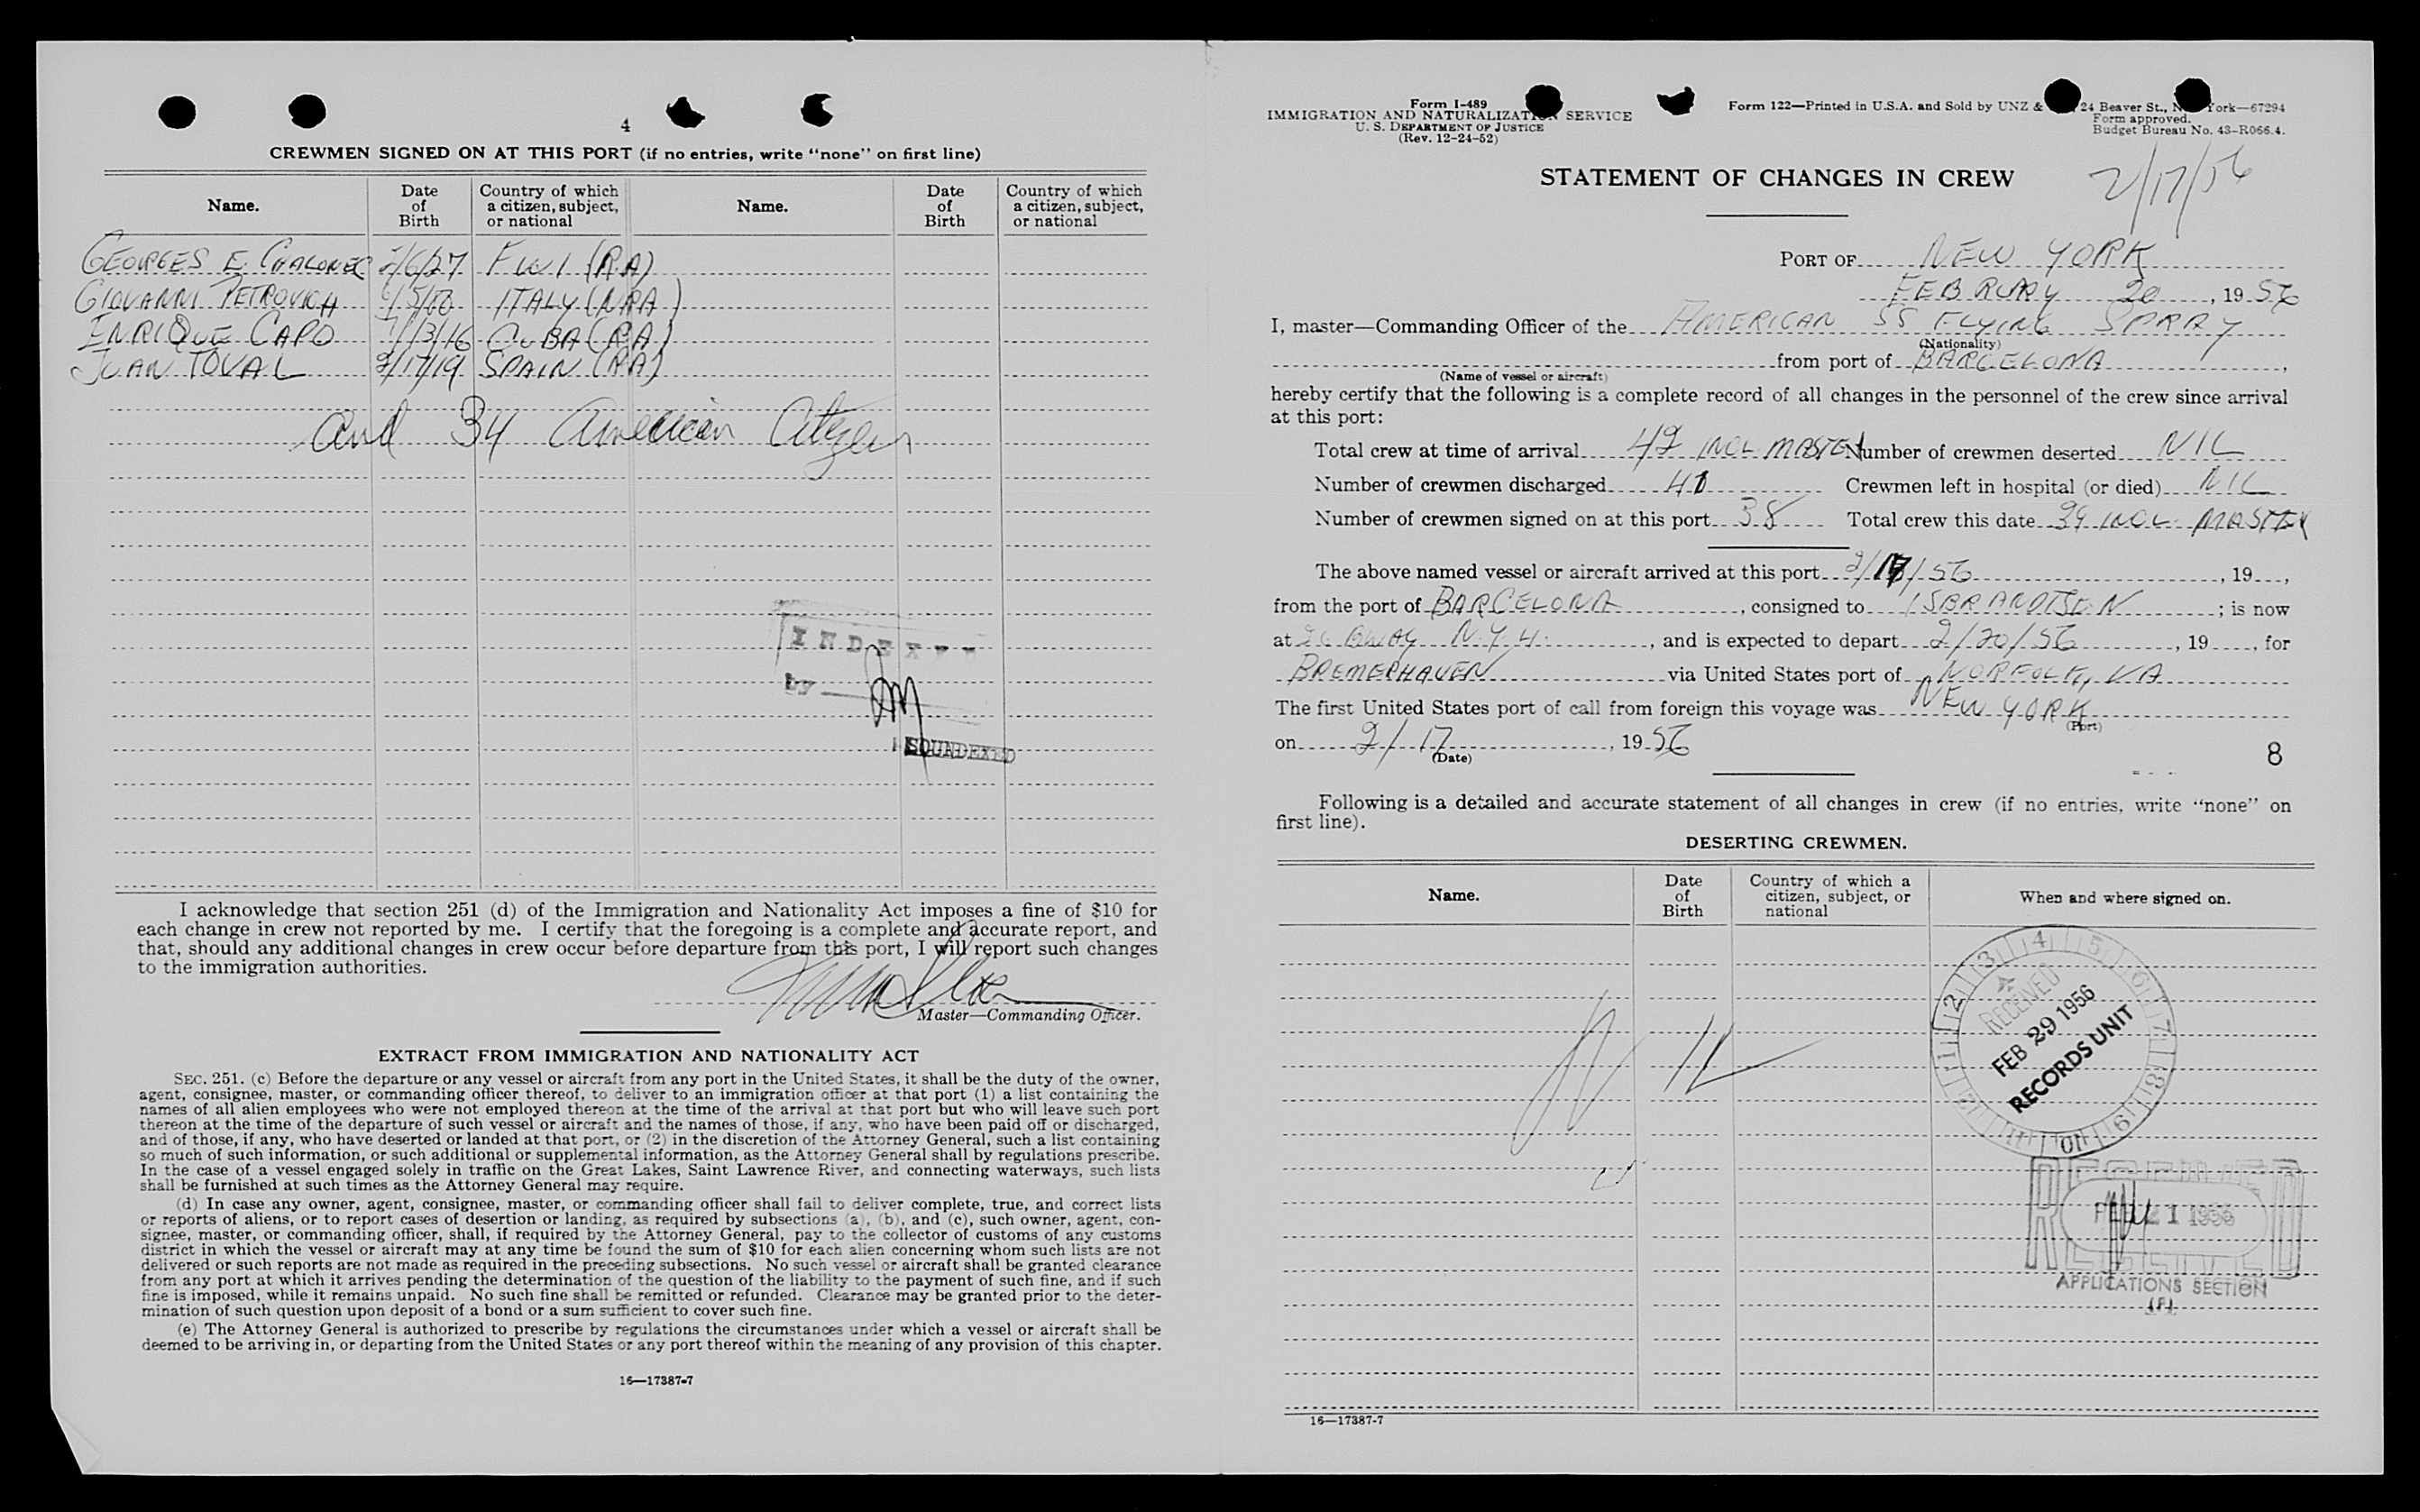 4
CREWMEN SIGNED ON AT THIS PORT (if no entries, write “none” on first line)
Name. Date of Birth Country of which a citizen, subject, or national Name. Date of Birth Country of which a citizen, subject, or national
GEORGES E. 2/6/27 FWI (RA)
GIOVANNI PETROVICH ITALY (NRA)
ENRIQUE CAPO 7/13/16 CUBA (RA)
JUAN TOVAL 2/17/19 SPAIN (RA)
and 34 American Citizen
INDEXED
by
SOUNDEXED
I acknowledge that section 251 (d) of the Immigration and Nationality Act imposes a fine of $10 for
each change in crew not reported by me. I certify that the foregoing is a complete and accurate report, and
that, should any additional changes in crew occur before departure from this port, I will report such changes
to the immigration authorities.
Master—Commanding Officer.
EXTRACT FROM IMMIGRATION AND NATIONALITY ACT
SEC. 251. (c) Before the departure or any vessel or aircraft from any port in the United States, it shall be the duty of the owner,
agent, consignee, master, or commanding officer thereof, to deliver to an immigration officer at that port (1) a list containing the
names of all alien employees who were not employed thereon at the time of the arrival at that port but who will leave such port
thereon at the time of the departure of such vessel or aircraft and the names of those, if any, who have been paid off or discharged,
and of those, if any, who have deserted or landed at that port, or (2) in the discretion of the Attorney General, such a list containing
so much of such information, or such additional or supplemental information, as the Attorney General shall by regulations prescribe.
In the case of a vessel engaged solely in traffic on the Great Lakes, Saint Lawrence River, and connecting waterways, such lists
shall be furnished at such times as the Attorney General may require.
(d) In case any owner, agent, consignee, master, or commanding officer shall fail to deliver complete, true, and correct lists
or reports of aliens, or to report cases of desertion or landing, as required by subsections (a), (b), and (c), such owner, agent, con-
signee, master, or commanding officer, shall, if required by the Attorney General, pay to the collector of customs of any customs
district in which the vessel or aircraft may at any time be found the sum of $10 for each alien concerning whom such lists are not
delivered or such reports are not made as required in the preceding subsections. No such vessel or aircraft shall be granted clearance
from any port at which it arrives pending the determination of the question of the liability to the payment of such fine, and if such
fine is imposed, while it remains unpaid. No such fine shall be remitted or refunded. Clearance may be granted prior to the deter-
mination of such question upon deposit of a bond or a sum sufficient to cover such fine.
(e) The Attorney General is authorized to prescribe by regulations the circumstances under which a vessel or aircraft shall be
deemed to be arriving in, or departing from the United States or any port thereof within the meaning of any provision of this chapter.
16—17387-7
Form I-489
IMMIGRATION AND NATURALIZATION SERVICE
U. S. DEPARTMENT OF JUSTICE
(Rev. 12-24-52)
Form 122—Printed in U.S.A. and Sold by UNZ & 24 Beaver St., New York—67294
Form approved.
Budget Bureau No. 43-R066.4.
2/17/56
STATEMENT OF CHANGES IN CREW
PORT OF NEW YORK
FEBRUARY 20, 19 56
I, master—Commanding Officer of the AMERICAN SS FLYING SPRAY
(Nationality)
from port of BARCELONA,
(Name of vessel or aircraft)
hereby certify that the following is a complete record of all changes in the personnel of the crew since arrival
at this port:
Total crew at time of arrival 42 INCL MASTER Number of crewmen deserted NIL
Number of crewmen discharged 41 Crewmen left in hospital (or died) NIL
Number of crewmen signed on at this port 38 Total crew this date 39 INCL MASTER
The above named vessel or aircraft arrived at this port 2/17/56, 19 ,
from the port of BARCELONA, consigned to ISBRANDTSEN; is now
at 26 BWAY N.Y. 4., and is expected to depart 2/20/56, 19 , for
BREMERHAVEN via United States port of NORFOLK, VA
The first United States port of call from foreign this voyage was NEW YORK
(Port)
on 2/17, 19 56
(Date)
8
Following is a detailed and accurate statement of all changes in crew (if no entries, write “none” on
first line).
DESERTING CREWMEN.
Name. Date of Birth Country of which a citizen, subject, or national When and where signed on.
NIL
1 2 3 4 5 6 7 8 9 10 11 12
RECEIVED
FEB 29 1956
RECORDS UNIT
RECEIVED
FEB 21 1956
RECEIVED
APPLICATIONS SECTION
16—17387-7